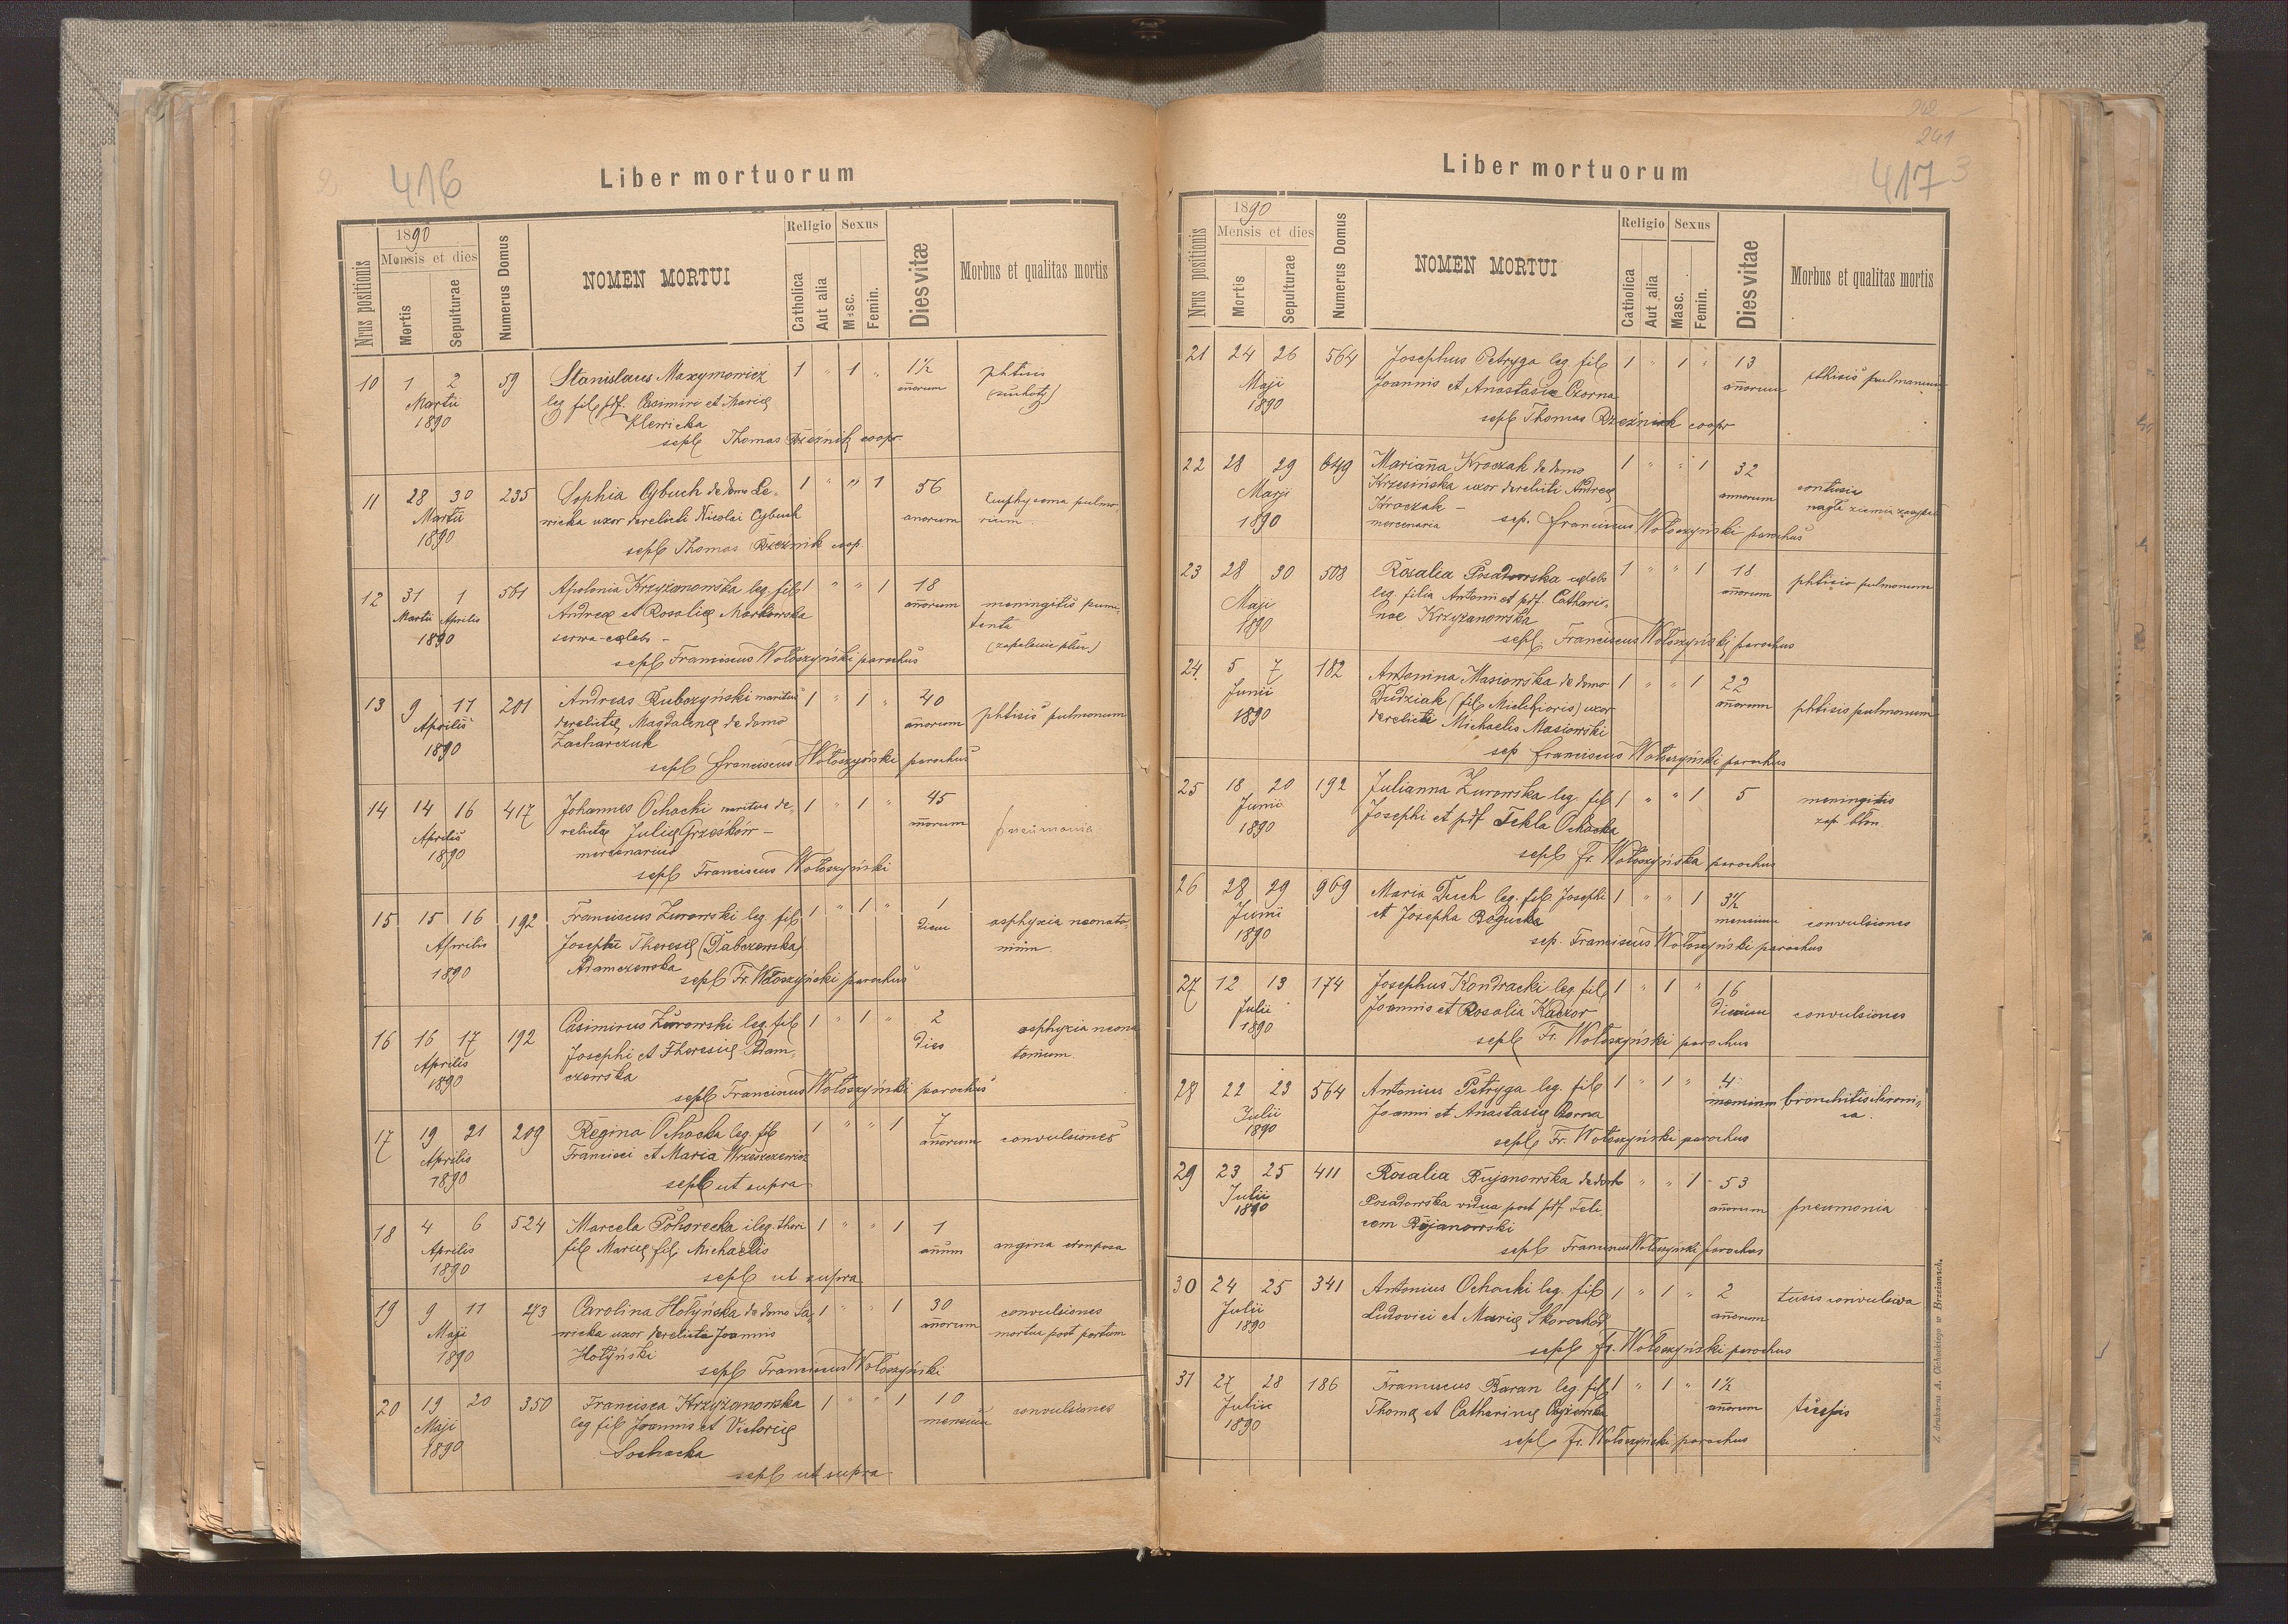 416
Liber mortuorum
Nrus positionis
1890
Mensis et dies
Mortis
Sepulturae
Numerus Domus
NOMEN MORTUI
Religio
Catholica
Aut alia
Sexus
Masc.
Femin.
Dies vitæ
Morbus et qualitas mortis
10 1 2 59 Stanislaus Maxymowicz 1 " 1 " 1½ phtisis
Martii leg fil pdf. Casimiri et Mariæ añorum (suchoty)
1890 Klewicka
sepl Thomas Rzeźnik coopr
11 28 30 235 Sophia Cybuch de domo Le- 1 " " 1 56 Emphysema pulmo-
Martii wicka uxor derelicti Nicolai Cybuch anorum
1890 sepl Thomas Rzeźnik coop.
12 31 1 561 Apolonia Krzyżanowska leg. fil 1 " " 1 18
Martii Aprilis Andreæ et Rosaliæ Markowska añorum meningitis
1890 serva-cæleb -
sepl Franciscus Wołoszyński parochus
13 9 11 201 Andreas Rubczyński maritus 1 " 1 " 40
Aprilis derelictæ Magdalenæ de domo añorum phtisis pulmonum
1890 Zacharczuk
sepl Franciscus Wołoszyński parochus
14 14 16 417 Johannes Ochocki maritus de- 1 " 1 " 45
Aprilis relictæ Juliæ Grześków - añorum pneumonia
1890 mercenarius
sepl Franciscus Wołoszyński
15 15 16 192 Franciscus Żurowski leg. fil 1 " 1 " 1
Aprilis Josephi Theresiæ (Dabczewska) diem asphyxia neonato-
1890 Adamczewska
sepl Fr. Wołoszyński parochus
16 16 17 192 Casimirus Żurowski leg. fil 1 " 1 " 2 asphyxia neona
Aprilis Josephi et Theresiæ Adam- dies torium
1890 czewska
sepl Franciscus Wołoszyński parochus
17 19 21 209 Regina Ochocka leg. fil 1 " " 1 7
Aprilis Francisci et Maria Wrzeszczewicz añorum convulsiones
1890 sepl ut supra
18 4 6 524 Marcela Pohorecka ileg. thori 1 " " 1 1
Aprilis fil Mariæ fil. Michaelis añum angina
1890 sepl ut supra
19 9 11 273 Carolina Hołyńska de domo Sa- 1 " " 1 30 convulsiones
Maji wicka uxor derelicta Joannis añorum mortua post partum
1890 Hołyński
sepl Franciscus Wołoszyński
20 19 20 350 Francisca Krzyżanowska 1 " " 1 10 convulsiones
Maji leg fil Joannis et Victoriæ mensium
1890 Sochacka
sepl ut supra
241
417
Liber mortuorum
Nrus positionis
1890
Mensis et dies
Mortis
Sepulturae
Numerus Domus
NOMEN MORTUI
Religio
Catholica
Aut alia
Sexus
Masc.
Femin.
Dies vitæ
Morbus et qualitas mortis
21 24 26 564 Josephus Petryga leg fil 1 " 1 " 13
Maji Joannis et Anastasiæ Czorna añorum phtisis pulmonum
1890 sepl Thomas Rzeźniak coopr
22 28 29 649 Marianna Kroczak de domo 1 " " 1 32
Maji Krzesińska uxor derelicti Andreæ annorum contusio
1890 Kroczak - nagła ziemia
mercenaria sep. Franciscus Wołoszyński parochus
23 28 30 508 Rosalia Posadowska cæleb 1 " " 1 18 phtisis pulmonum
Maji leg. filia Antonii et pdf. Cathari- añorum
1890 nae Krzyżanowska
sepl. Franciscus Wołoszyński parochus
24 5 7 182 Antonina Masiowska de domo 1 " " 1 22
Junii Dudziak (fil Melchioris) uxor añorum phtisis pulmonum
1890 derelicti Michaelis Masiowski
sep Franciscus Wołoszyński parochus
25 18 20 192 Julianna Żurowska leg. fil 1 " " 1 5 meningitis
Junii Josephi et pdf Tekla Ochocka zap. błon
1890 sepl Fr. Wołoszyńska parochus
26 28 29 969 Maria Duch leg. fil. Josephi 1 " " 1 3½
Junii et Josepha Bogucka mensium convulsiones
1890 sep. Franciscus Wołoszyński parochus
27 12 13 174 Josephus Kondracki leg. fil 1 " 1 " 16
Julii Joannis et Rosalia Kaczor dierum convulsiones
1890 sepl Fr. Wołoszyński parochus
28 22 23 564 Antonius Petryga leg. fil 1 " 1 " 4
Julii Joanni et Anastasiæ Czorna mensium bronchitis chroni-
1890 ca.
sepl Fr. Wołoszyński parochus
29 23 25 411 Rosalia Bujanowska de domo " " 1 53
Julii Posadowska vidua post pdf Feli- añorum pneumonia
1890 cem Bujanowski
sepl Franciscus Wołoszyński parochus
30 24 25 341 Antonius Ochocki leg. fil 1 " 1 " 2 tusis convulsiva
Julii Ludovici et Mariæ Skorochód añorum
1890 sepl Fr. Wołoszyński parochus
31 27 28 186 Franciscus Baran leg. fil 1 " 1 " 1½
Julii Thomæ et Catharinæ añorum
1890 sepl Fr. Wołoszyński parochus
Z drukarni A. Cichockiego w Brzeżanach.